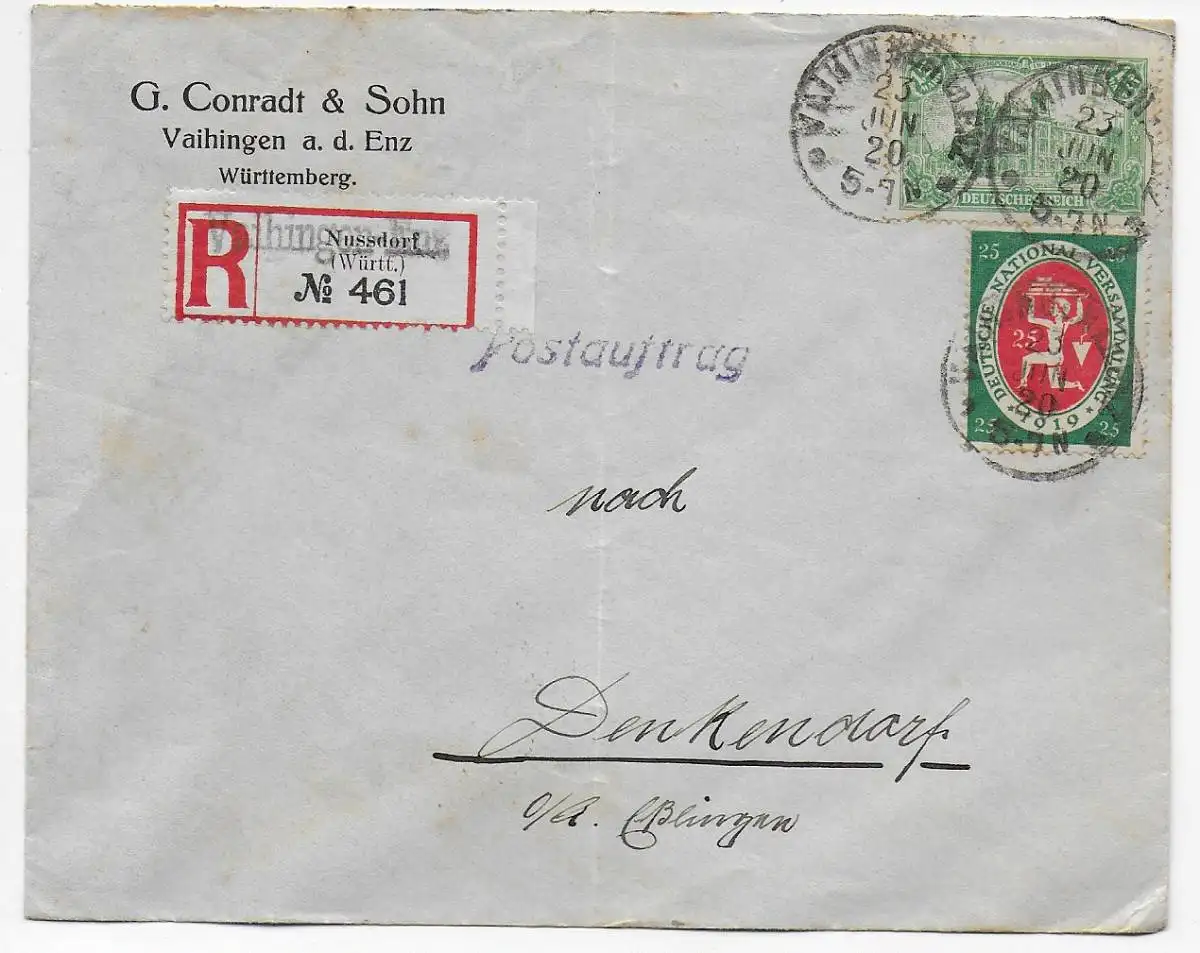 G. Conradt & Sohn
Vaihingen a. d. Enz
Württemberg.
R
Vaihingen Enz
Nussdorf
(Württ.)
№ 461
Postauftrag
23
JUN
20
5-7N
23
JUN
20
5-7N
DEUTSCHES REICH
25
DEUTSCHE NATIONAL VERSAMMLUNG
25
1919
25 25
23
JUN
20
5-7N
nach
Denkendorf
o/A. Eßlingen